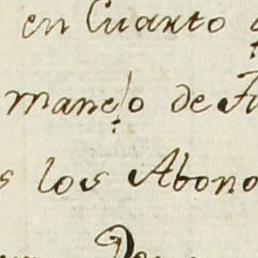 en Cuarto
manejo de
los Abono